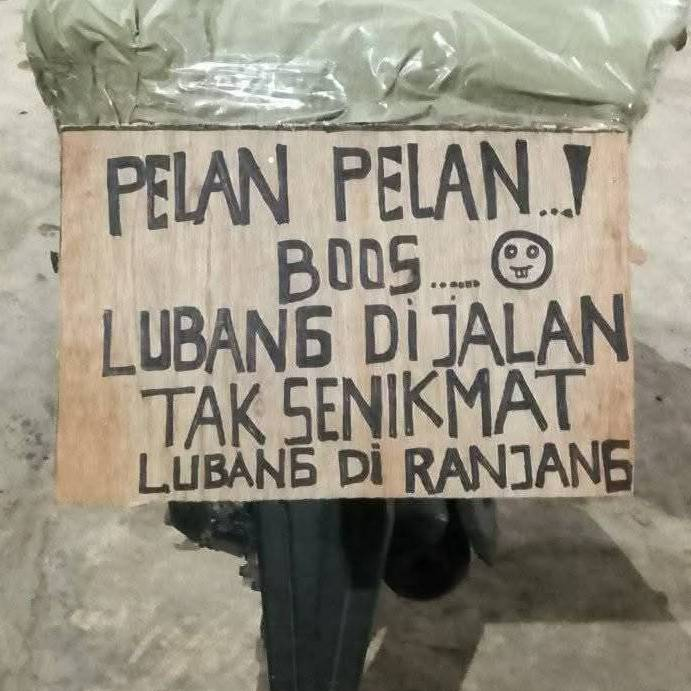 PELAN PELAN...!
BOOS......
LUBANG Di JALAN
TAK SENIKMAT
LUBANG Di RANJANG